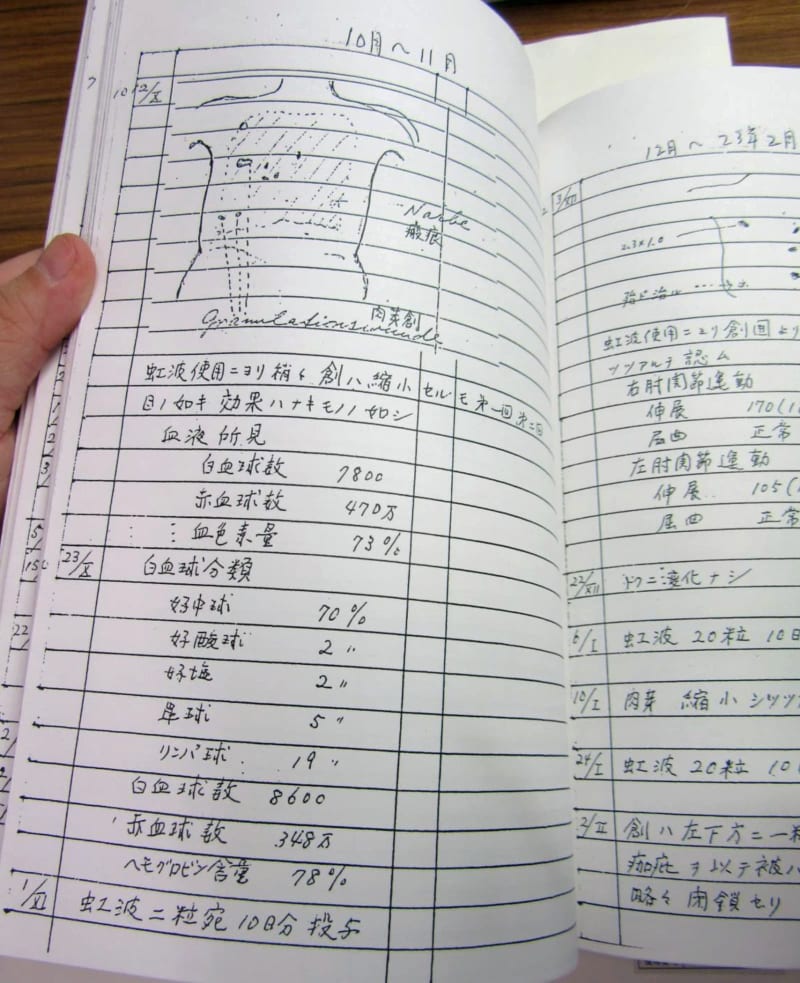 10月～11月
12/X
Narbe
瘢痕
肉芽創
Granulationswunde
虹波使用ニヨリ稍々創ハ縮小セルモ第一回第二回
目ノ如キ効果ハナキモノノ如シ
血液所見
白血球数 7800
赤血球数 470万
血色素量 73%
23/X 白血球分類
好中球 70%
好酸球 2〃
好塩 2〃
単球 5〃
リンパ球 19〃
白血球数 8600
赤血球数 348万
ヘモグロビン含量 78%
1/XI 虹波二粒宛10日分投与
12月～23年2月
3/XII
2.3×1.0
殆ど治ル
虹波使用ニヨリ創面ヨリ
ツツアルヲ認ム
右肘関節運動
伸展 170(1
屈曲 正常
左肘関節運動
伸展 105(
屈曲 正常
22/XII 変化ナシ
6/I 虹波 20粒 10日
10/I 肉芽 縮小シツツ
24/I 虹波 20粒 10
2/II 創ハ左下方ニ一
痂疲ヲ以テ被ハ
略々閉鎖セリ